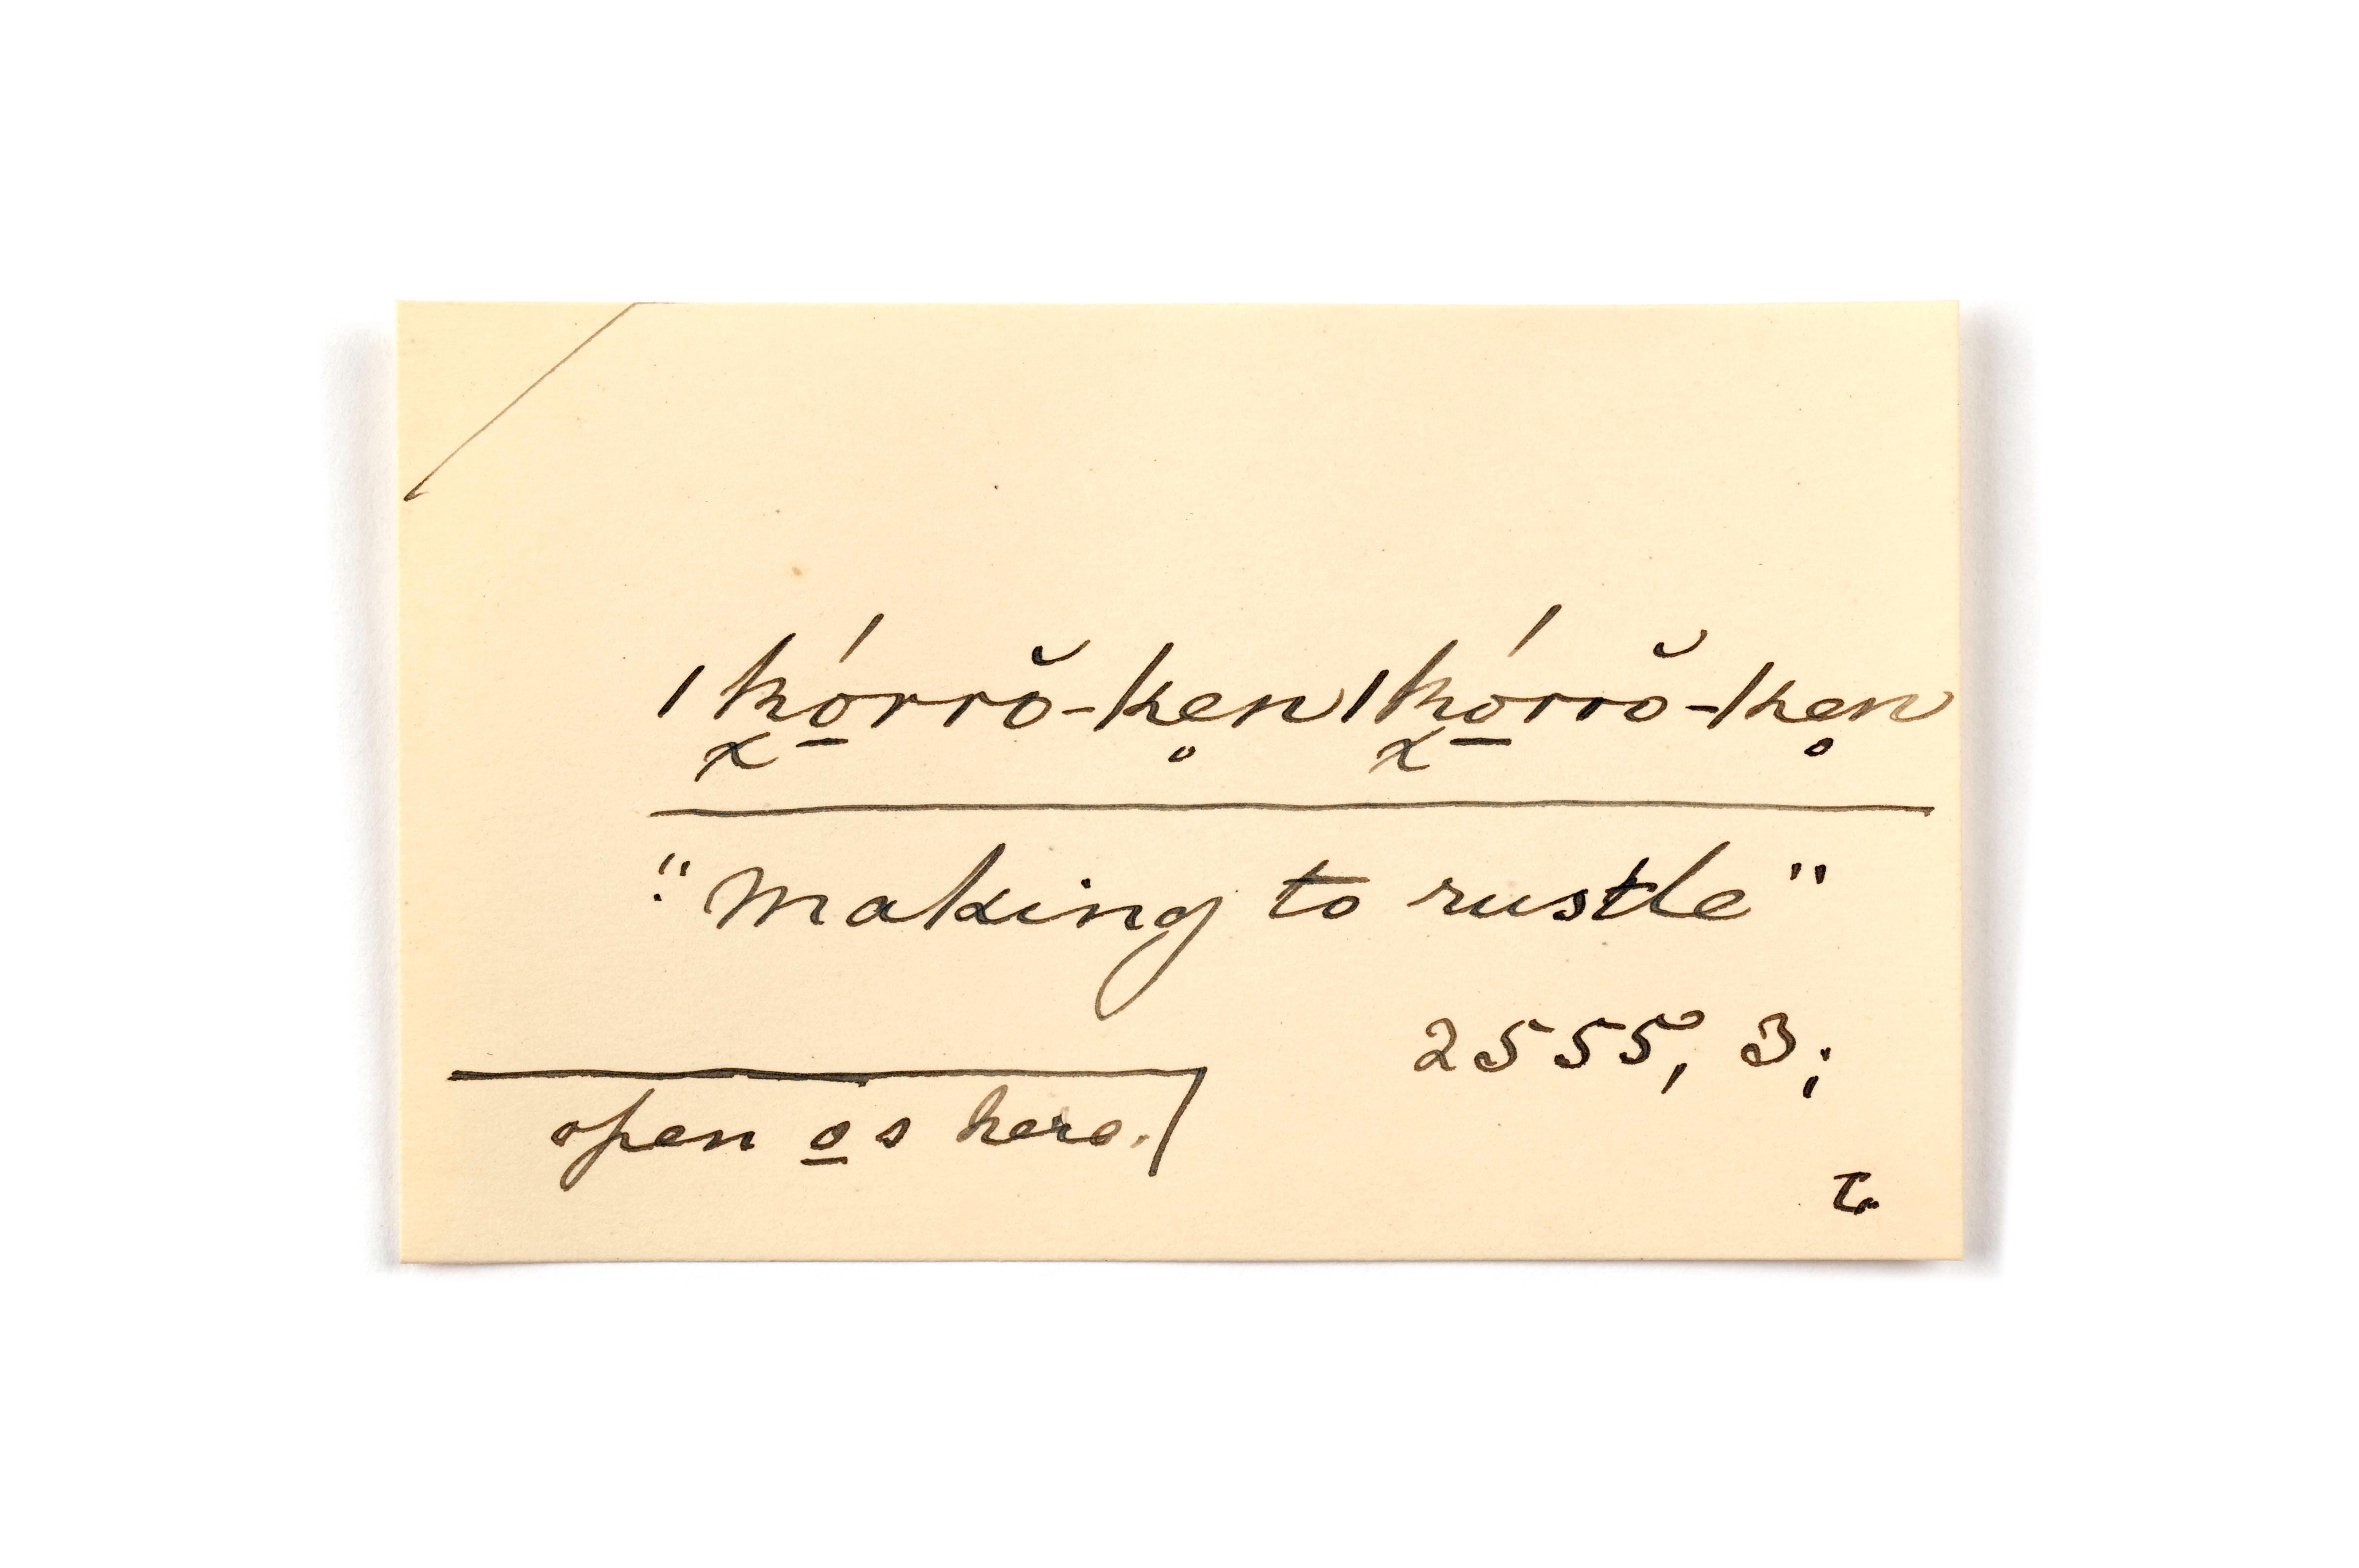 |k͓ó̠rrŏ-ken̥|k͓ó̠rrŏ-ken̥
"Making to rustle"
2555, 3;
open o̲s here.